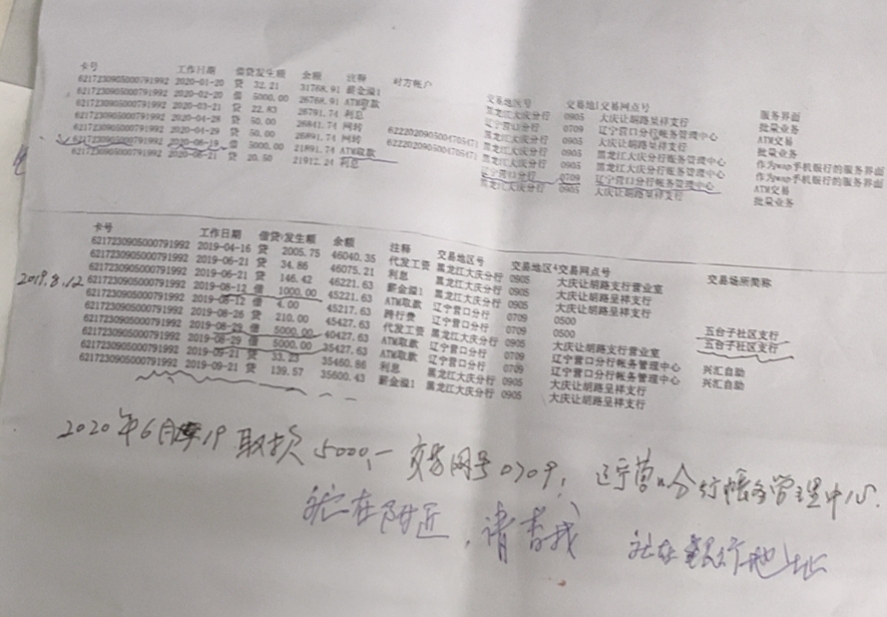 卡号 工作日期 借贷发生额 余额 注释 对方帐户 交易地区号 交易地区 交易网点号 服务界面
6217230905000791992 2020-01-20 贷 32.21 31768.91 薪金溢1 黑龙江大庆分行 0905 大庆让胡路呈祥支行 批量业务
6217230905000791992 2020-02-20 借 5000.00 26768.91 ATM取款 辽宁营口分行 0709 辽宁营口分行帐务管理中心 ATM交易
6217230905000791992 2020-03-21 贷 22.83 26791.74 利息 黑龙江大庆分行 0905 大庆让胡路呈祥支行 批量业务
6217230905000791992 2020-04-28 贷 50.00 26841.74 网转 黑龙江大庆分行 0905 黑龙江大庆分行帐务管理中心 作为wap手机银行的服务界面
6217230905000791992 2020-04-29 贷 50.00 26891.74 网转 黑龙江大庆分行 0905 黑龙江大庆分行帐务管理中心 作为wap手机银行的服务界面
6217230905000791992 借 5000.00 21891.74 ATM取款 辽宁营口分行 0709 辽宁营口分行帐务管理中心 ATM交易
6217230905000791992 贷 20.50 21912.24 利息 黑龙江大庆分行 0905 大庆让胡路呈祥支行 批量业务
卡号 工作日期 借贷 发生额 余额 注释 交易地区号 交易地区 交易网点号 交易场所简称
6217230905000791992 2019-04-16 贷 2005.75 46040.35 代发工资 黑龙江大庆分行 0905 大庆让胡路支行营业室
6217230905000791992 2019-06-21 贷 34.86 46075.21 利息 黑龙江大庆分行 0905 大庆让胡路呈祥支行
6217230905000791992 2019-06-21 贷 146.42 46221.63 薪金溢1 黑龙江大庆分行 0905 大庆让胡路呈祥支行
2019.8.12 6217230905000791992 2019-08-12 借 1000.00 45221.63 ATM取款 辽宁营口分行 0709 0500 五台子社区支行
6217230905000791992 2019-08-12 借 4.00 45217.63 跨行费 辽宁营口分行 0709 0500 五台子社区支行
6217230905000791992 2019-08-26 贷 210.00 45427.63 代发工资 黑龙江大庆分行 0905 大庆让胡路支行营业室
6217230905000791992 2019-08-29 借 5000.00 40427.63 ATM取款 辽宁营口分行 0709 辽宁营口分行帐务管理中心 兴汇自助
6217230905000791992 2019-08-29 借 5000.00 35427.63 ATM取款 辽宁营口分行 0709 辽宁营口分行帐务管理中心 兴汇自助
6217230905000791992 2019-09-21 贷 33.23 35460.86 利息 黑龙江大庆分行 0905 大庆让胡路呈祥支行
6217230905000791992 2019-09-21 贷 139.57 35600.43 薪金溢1 黑龙江大庆分行 0905 大庆让胡路呈祥支行
2020年6月19 取款 5000,- 交易网号0709, 辽宁营口分行帐务管理中心.
就在附近,请查找 社区银行地址